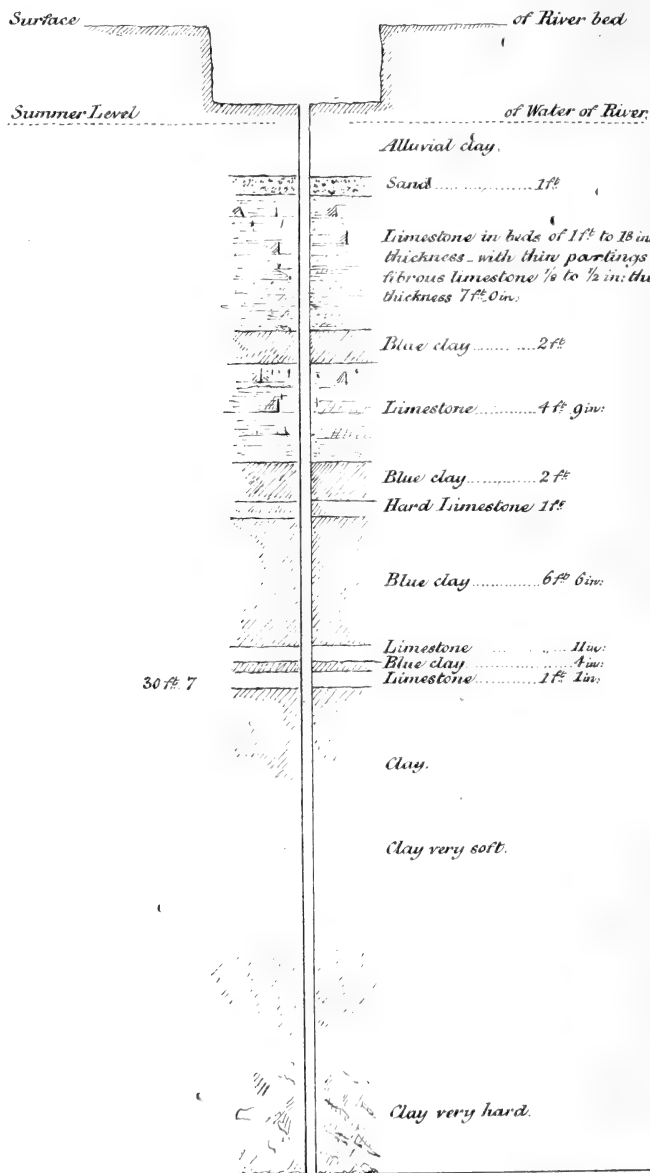 Surface of River bed
Summer Level of Water of River.
Alluvial clay.
Sand ............ 1 ft
Limestone in beds of 1 ft to 18 in
thickness - with thin partings
fibrous limestone 1/8 to 1/2 in: the
thickness 7 ft 0 in:
Blue clay ......... 2 ft
Limestone ............ 4 ft 9 in:
Blue clay ......... 2 ft
Hard Limestone 1 ft
Blue clay ............ 6 ft 6 in:
Limestone .. 11 in:
Blue clay ............ 4 in:
30 ft 7 Limestone ......... 1 ft 1 in:
Clay.
Clay very soft.
Clay very hard.